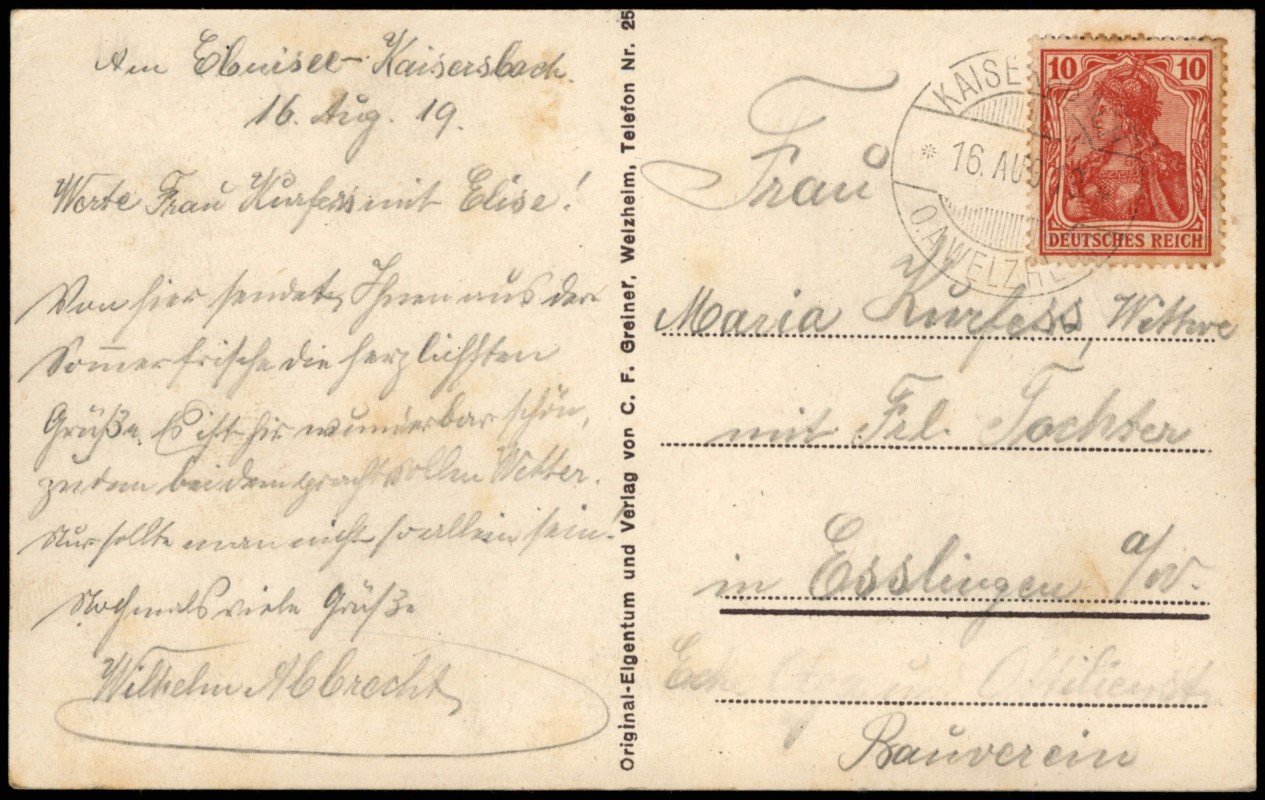 Am Ebnisee-Kaisersbach.
16. Aug. 19.
Werte Frau Kurfess mit Elise!
Von hier sendet Ihnen aus der
Sommerfrische die herzlichsten
Grüße. Es ist hir wunderbar schön,
zudem bei dem prachtvollen Wetter.
Nur sollte man nicht so allein sein!
Nochmals viele Grüße
Wilhelm Albrecht
Original-Eigentum und Verlag von C. F. Greiner, Welzheim, Telefon Nr. 25
10 10
DEUTSCHES REICH
16. AUG
O.A. WELZHEIM
Frau
Maria Kurfess, Wittwe
mit Frl. Tochter
in Esslingen a/N.
Eck
Bauverein